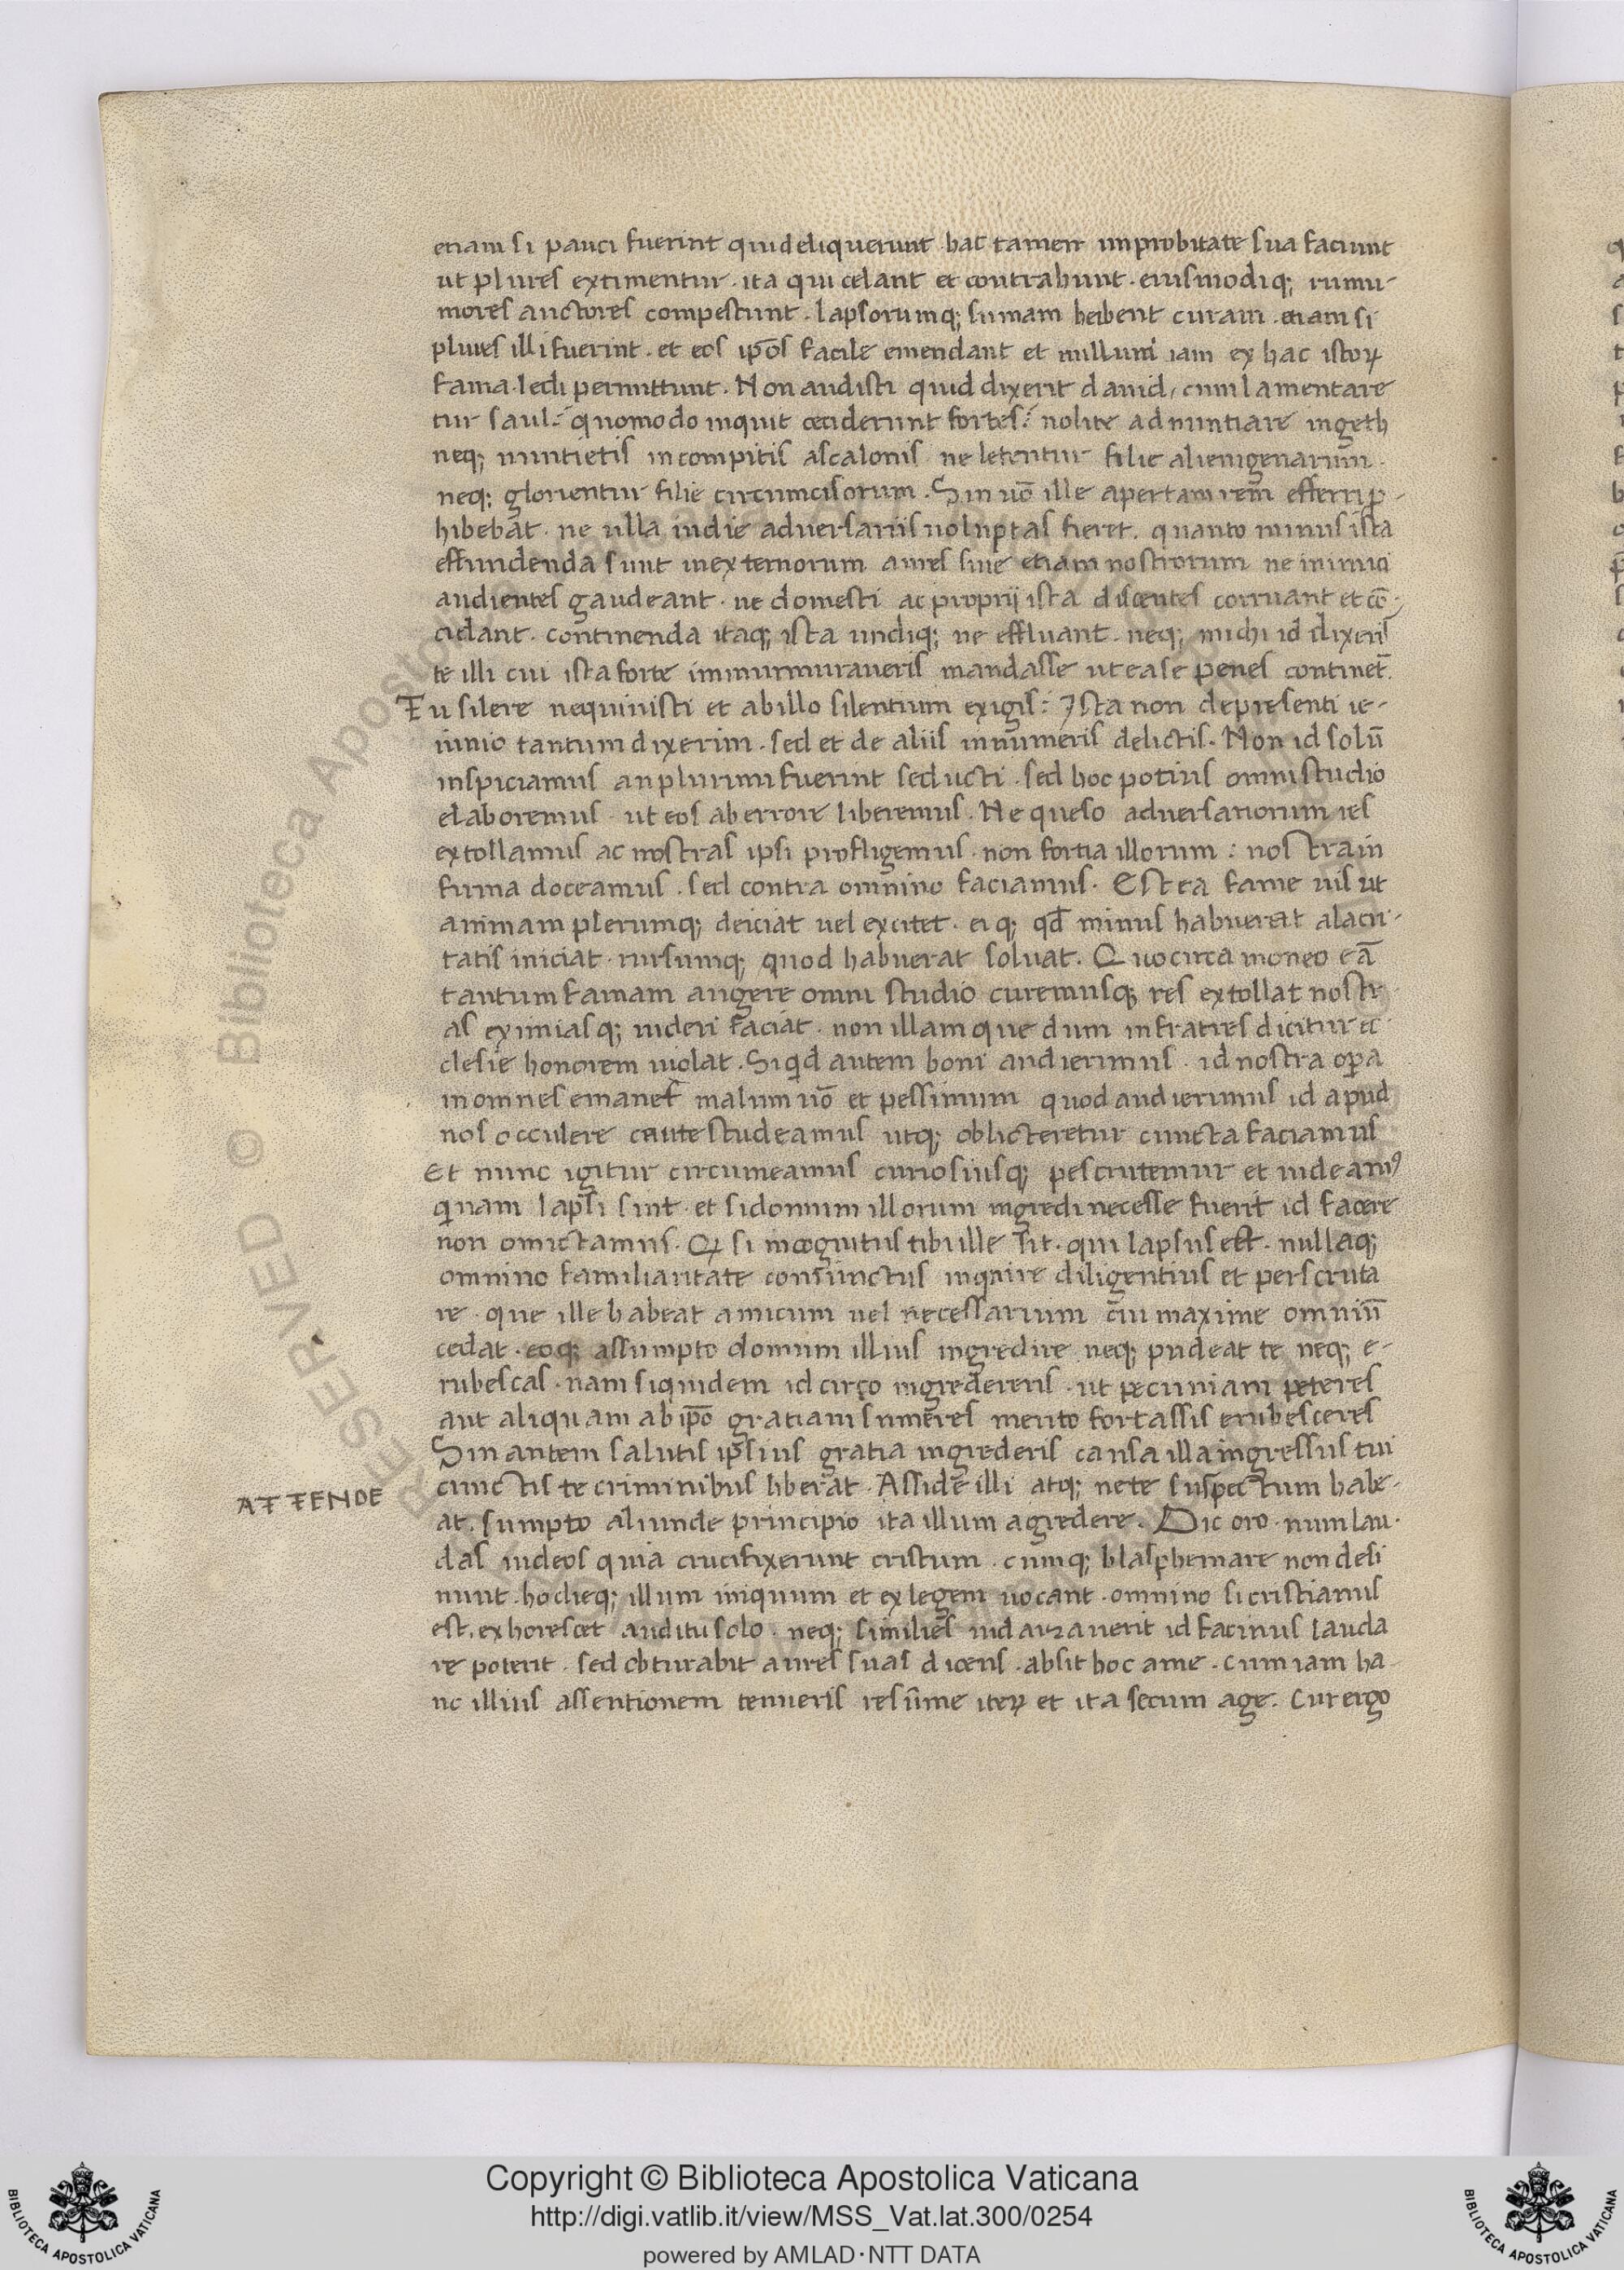 etiam si pauci fuerint qui deliquerunt hac tamen improbitate sua faciunt
ut plures extimentur . ita qui celant et contrahunt . eiusmodiq; rumu-
mores auctores compescunt . lapsorumq; sumam heibent curam . etiam si
plures illi fuerint . et eos ip̄os facile emendant et nullum iam ex hac istoꝝ
fama . ledi permittunt . Non audisti quid dixerit dauid / cum lamentare
tur saul : quomodo inquit ceciderunt fortes : nolite adnuntiare ingeth
neq; nuntietis in compitis ascalonis ne letentur filie alienigenarum .
neq; glorientur filie circumcisorum . Sin uō ille apertam rem efferri p-
hibebat . ne ulla iudie aduersariis uoluptas fieret . quanto minus ista
effundenda sunt in externorum aures siue etiam nostrorum ne inimici
audientes gaudeant . ne domesti ac proprij ista discentes corruant et cō-
cidant . continenda itaq; ista undiq; ne effluant . neq; michi id dixeris
te illi cui ista forte immurmuraueris mandasse ut ea se penes continet̄.
Tu silere nequinisti et ab illo silentium exigis : Ista non de presenti ie-
iunio tantum dixerim . sed et de aliis innumeris delictis . Non id solū
inspiciamus an plurimi fuerint seducti . sed hoc potius omni studio
elaboremus . ut eos ab errore liberemus . Ne queso aduersariorum res
extollamus ac nostras ipsi profligemus . non fortia illorum : nostra in
firma doceamus . sed contra omnino faciamus . Est ea fame uis ut
animam plerumq; deiciat uel excitet . ei q; qd̄ minus habuerat alacri-
tatis iniciat . rursumq; quod habuerat soluat . Quocirca moneo eā
tantum famam augere omni studio curemusq; res extollat nostr-
as eximiasq; uideri faciat . non illam que dum in fratres dicitur ec-
clesie honorem uiolat . Siqd autem boni audierimus . id nostra oꝑa
in omnes emanet malum uō et pessimum quod audierimus id apud
nos occulere caute studeamus utq; oblicteretur cuncta faciamus
Et nunc igitur circumeamus curiosiusq; pescrutemur et uideamꝰ
quinam lapsi sint . et si domum illorum ingredi necesse fuerit id facere
non omictamus . Qꝫ si incognitus tibi ille sit . qui lapsus est . nullaq;
omnino familiaritate coniunctus inquire diligentius et perscruta
re . que ille habeat amicum uel necessarium cui maxime omniū
cedat . eoq; assumpto domum illius ingredire neq; pudeat te neq; e-
rubescas . nam siquidem id circo ingredereris . ut pecuniam peteres
aut aliquam ab ip̄o gratiam sumeres merito fortassis erubesceres
Sin autem salutis ip̄sius gratia ingrederis causa illa ingressus tui
cunctis te criminibus liberat . Asside illi atq; ne te suspectum habe-
at . sumpto aliunde principio ita illum agredere . Dic oro . num lau-
das iudeos quia crucifixerunt cristum . cumq; blasphemare non desi
nunt . hodieq; illum iniquum et exlegem uocant . omnino si cristianus
est . exhorescet auditu solo . neq; similies iudaizauerit id facinus lauda
re poterit . sed obturabit aures suas dicens . absit hoc ame . cum iam ha-
nc illius assentionem tenueris resūme iteꝝ et ita secum age . Cur ergo
ATTENDE
Copyright © Biblioteca Apostolica Vaticana
http://digi.vatlib.it/view/MSS_Vat.lat.300/0254
powered by AMLAD·NTT DATA
BIBLIOTECA APOSTOLICA VATICANA
BIBLIOTECA APOSTOLICA VATICANA